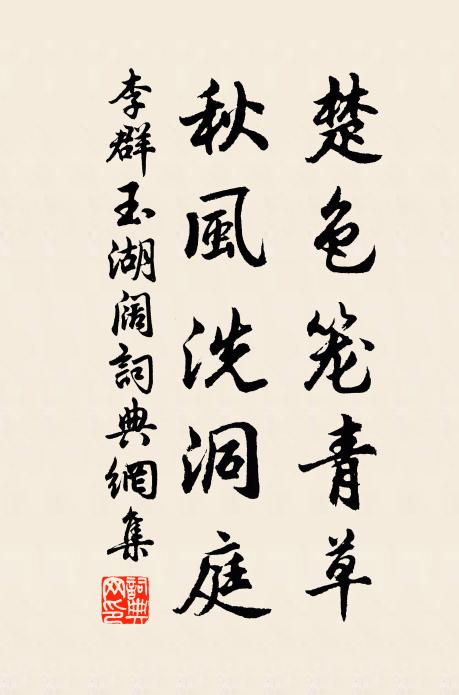 楚色笼青草
秋風洗洞庭
李群玉湖阔詞典網集
詞典网印